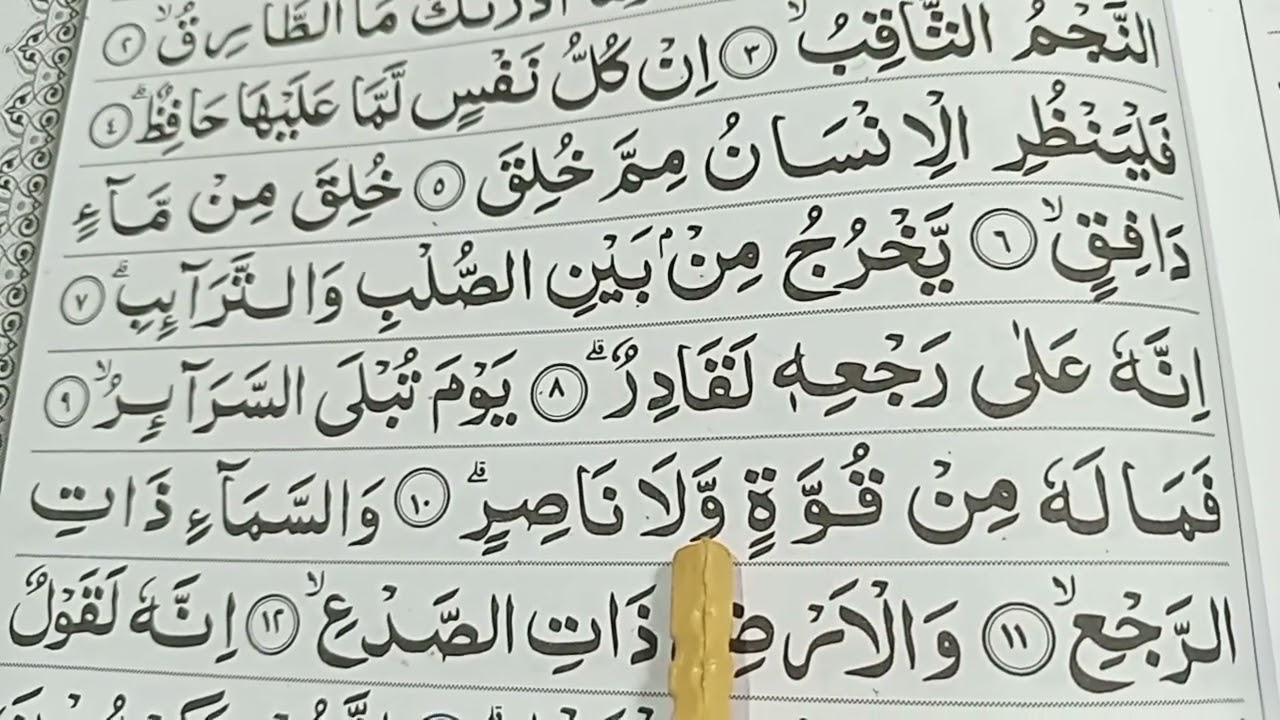 مَا الطَّارِقُ ۙ ٢
النَّجْمُ الثَّاقِبُ ۙ ٣ اِنْ كُلُّ نَفْسٍ لَّمَّا عَلَيْهَا حَافِظٌ ؕ ٤
فَلْيَنْظُرِ الْاِنْسَانُ مِمَّ خُلِقَ ٥ خُلِقَ مِنْ مَّآءٍ
دَافِقٍ ۙ ٦ يَّخْرُجُ مِنْۢ بَيْنِ الصُّلْبِ وَالتَّرَآئِبِ ؕ ٧
اِنَّهٗ عَلٰى رَجْعِهٖ لَقَادِرٌ ؕ ٨ يَوْمَ تُبْلَى السَّرَآئِرُ ۙ ٩
فَمَا لَهٗ مِنْ قُوَّةٍ وَّلَا نَاصِرٍ ؕ ١٠ وَالسَّمَآءِ ذَاتِ
الرَّجْعِ ۙ ١١ وَالْاَرْضِ ذَاتِ الصَّدْعِ ۙ ١٢ اِنَّهٗ لَقَوْلٌ